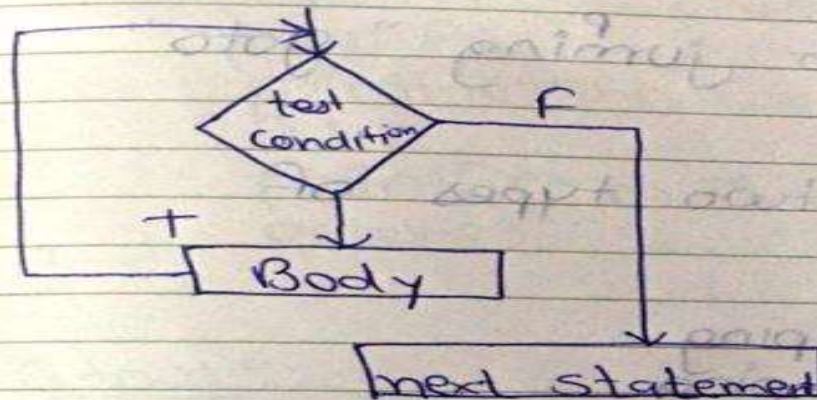 test
condition
F
T
Body
next statement